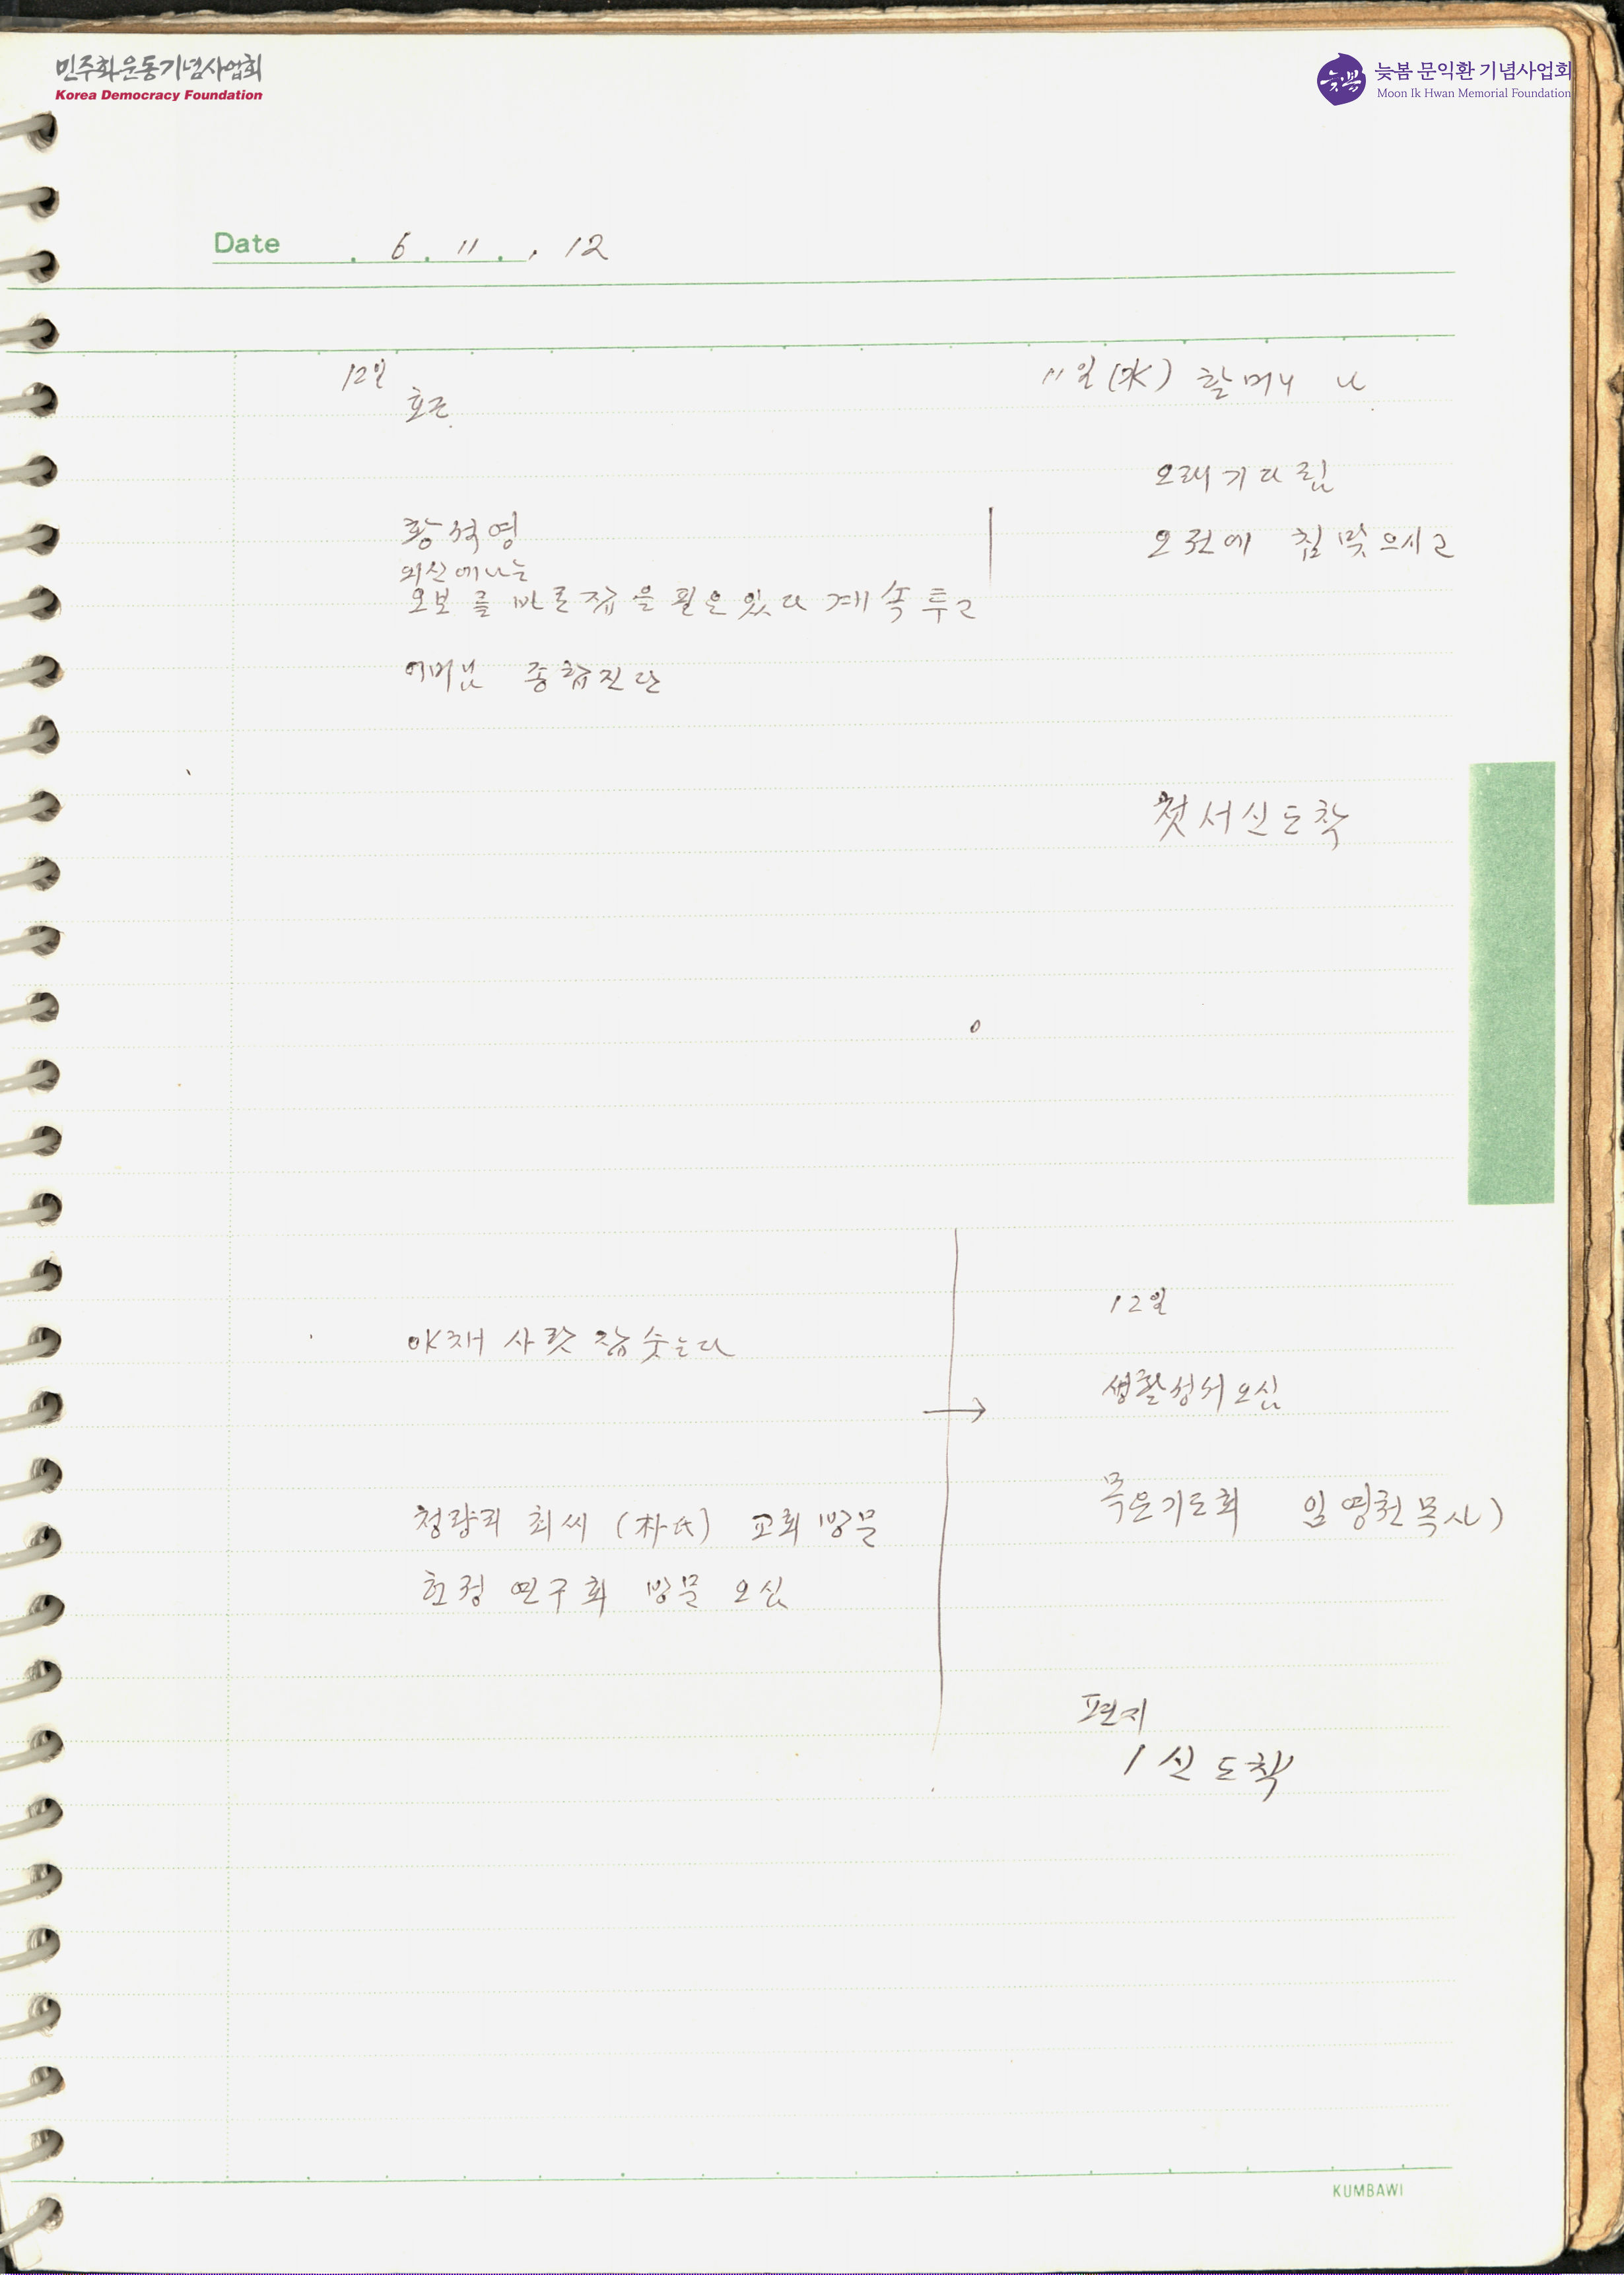 민주화운동기념사업회
Korea Democracy Foundation
늦봄
늦봄 문익환 기념사업회
Moon Ik Hwan Memorial Foundation
Date . 6 . 11 . , 12
12일
호근
황석영
외신에나는
오보를 바로잡을 필요있다 계속투고
어머님 종합진단
11일(水) 할머니 나
오래기다림
오전에 침맞으시고
첫서신도착
야채 사랏 잡숫는다
청량리 최씨 (朴氏) 교회방문
헌정연구회 방문 오심
12일
생활성서오심
목요기도회 임영천목사)
편지
1신도착
KUMBAWI